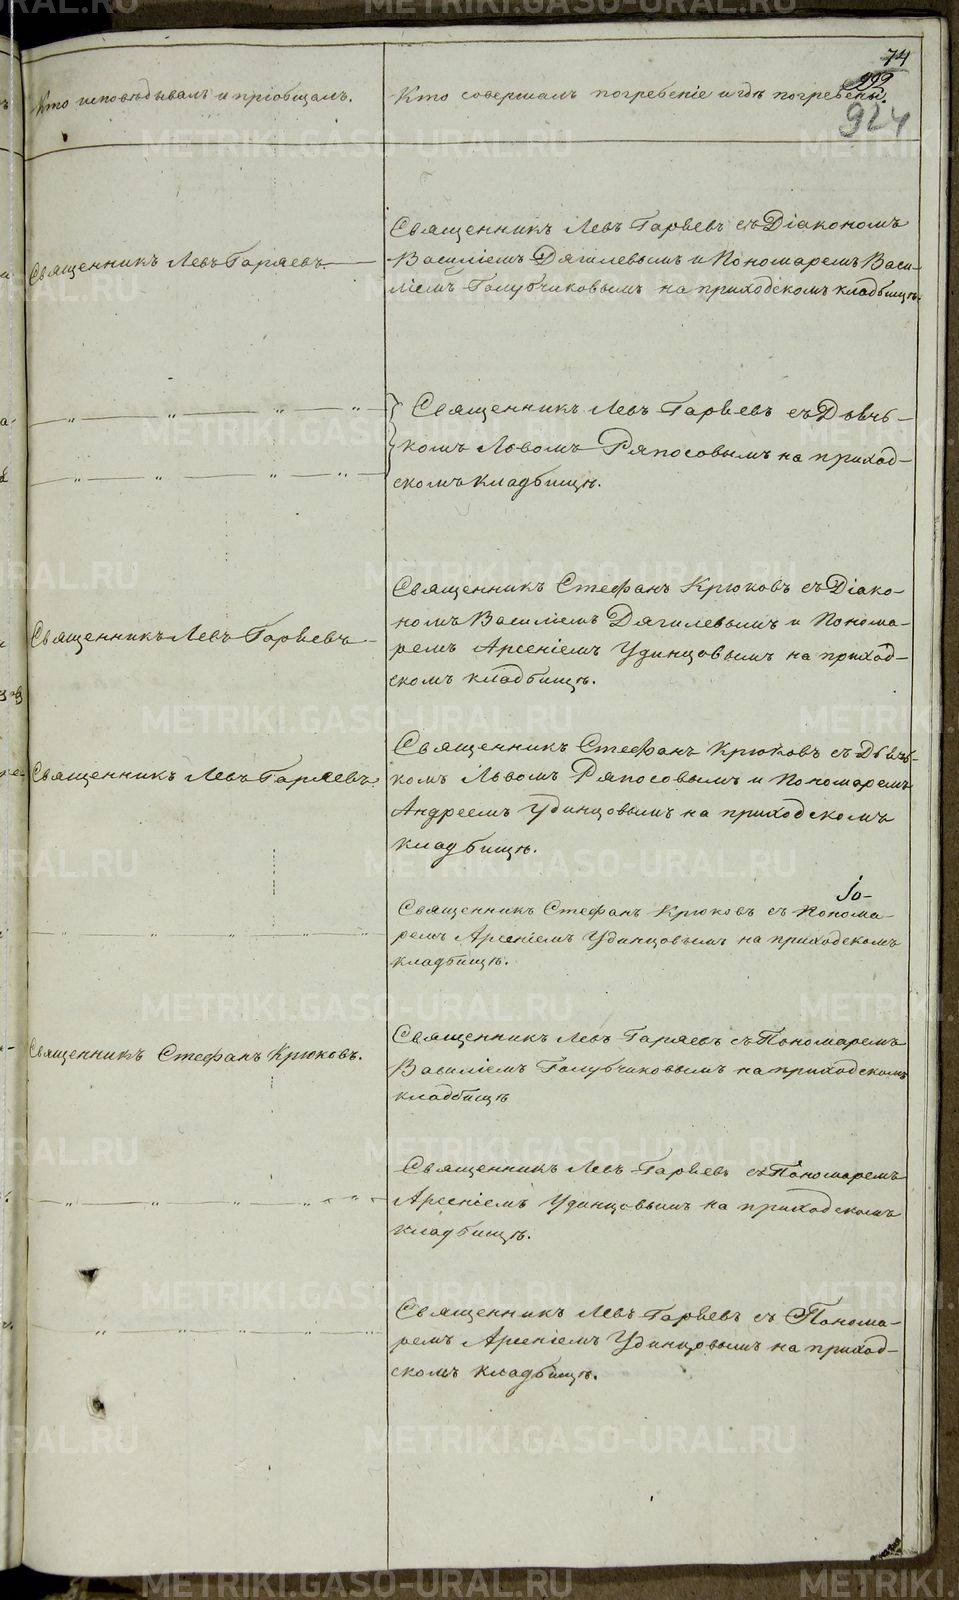 74
992
924
Кто исповѣдывалъ и пріобщалъ.
Кто совершалъ погребеніе и гдѣ погребены.
Священникъ Левъ Гаряевъ.
Священникъ Левъ Гаряевъ съ Діакономъ
Василіемъ Дягилевымъ и Пономаремъ Васи-
ліемъ Голубчиковымъ на приходскомъ кладбищѣ.
— „ — „ — „ — „ —
— „ — „ — „ — „ —
Священникъ Левъ Гаряевъ съ Дьяч-
комъ Львомъ Ряпосовымъ на приход-
скомъ кладбищѣ.
Священникъ Левъ Гаряевъ
Священникъ Стефанъ Крюковъ съ Діако-
номъ Василіемъ Дягилевымъ и Понома-
ремъ Арсеніемъ Удинцовымъ на приход-
скомъ кладбищѣ.
Священникъ Левъ Гаряевъ.
Священникъ Стефанъ Крюковъ съ Дьяч-
комъ Львомъ Ряпосовымъ и Пономаремъ
Андреемъ Удинцовымъ на приходскомъ
кладбищѣ.
— „ — „ — „ — „ —
Священникъ Стефанъ Крюковъ съ Понома-
ремъ Арсеніемъ Удинцовымъ на приходскомъ
кладбищѣ.
Священникъ Стефанъ Крюковъ.
Священникъ Левъ Гаряевъ съ Пономаремъ
Василіемъ Голубчиковымъ на приходскомъ
кладбищѣ
— „ — „ — „ — „ —
Священникъ Левъ Гаряевъ съ Пономаремъ
Арсеніемъ Удинцовымъ на приходскомъ
кладбищѣ.
— „ — „ — „ — „ —
Священникъ Левъ Гаряевъ съ Понома-
ремъ Арсеніемъ Удинцовымъ на приход-
скомъ кладбищѣ.
METRIKI.GASO-URAL.RU